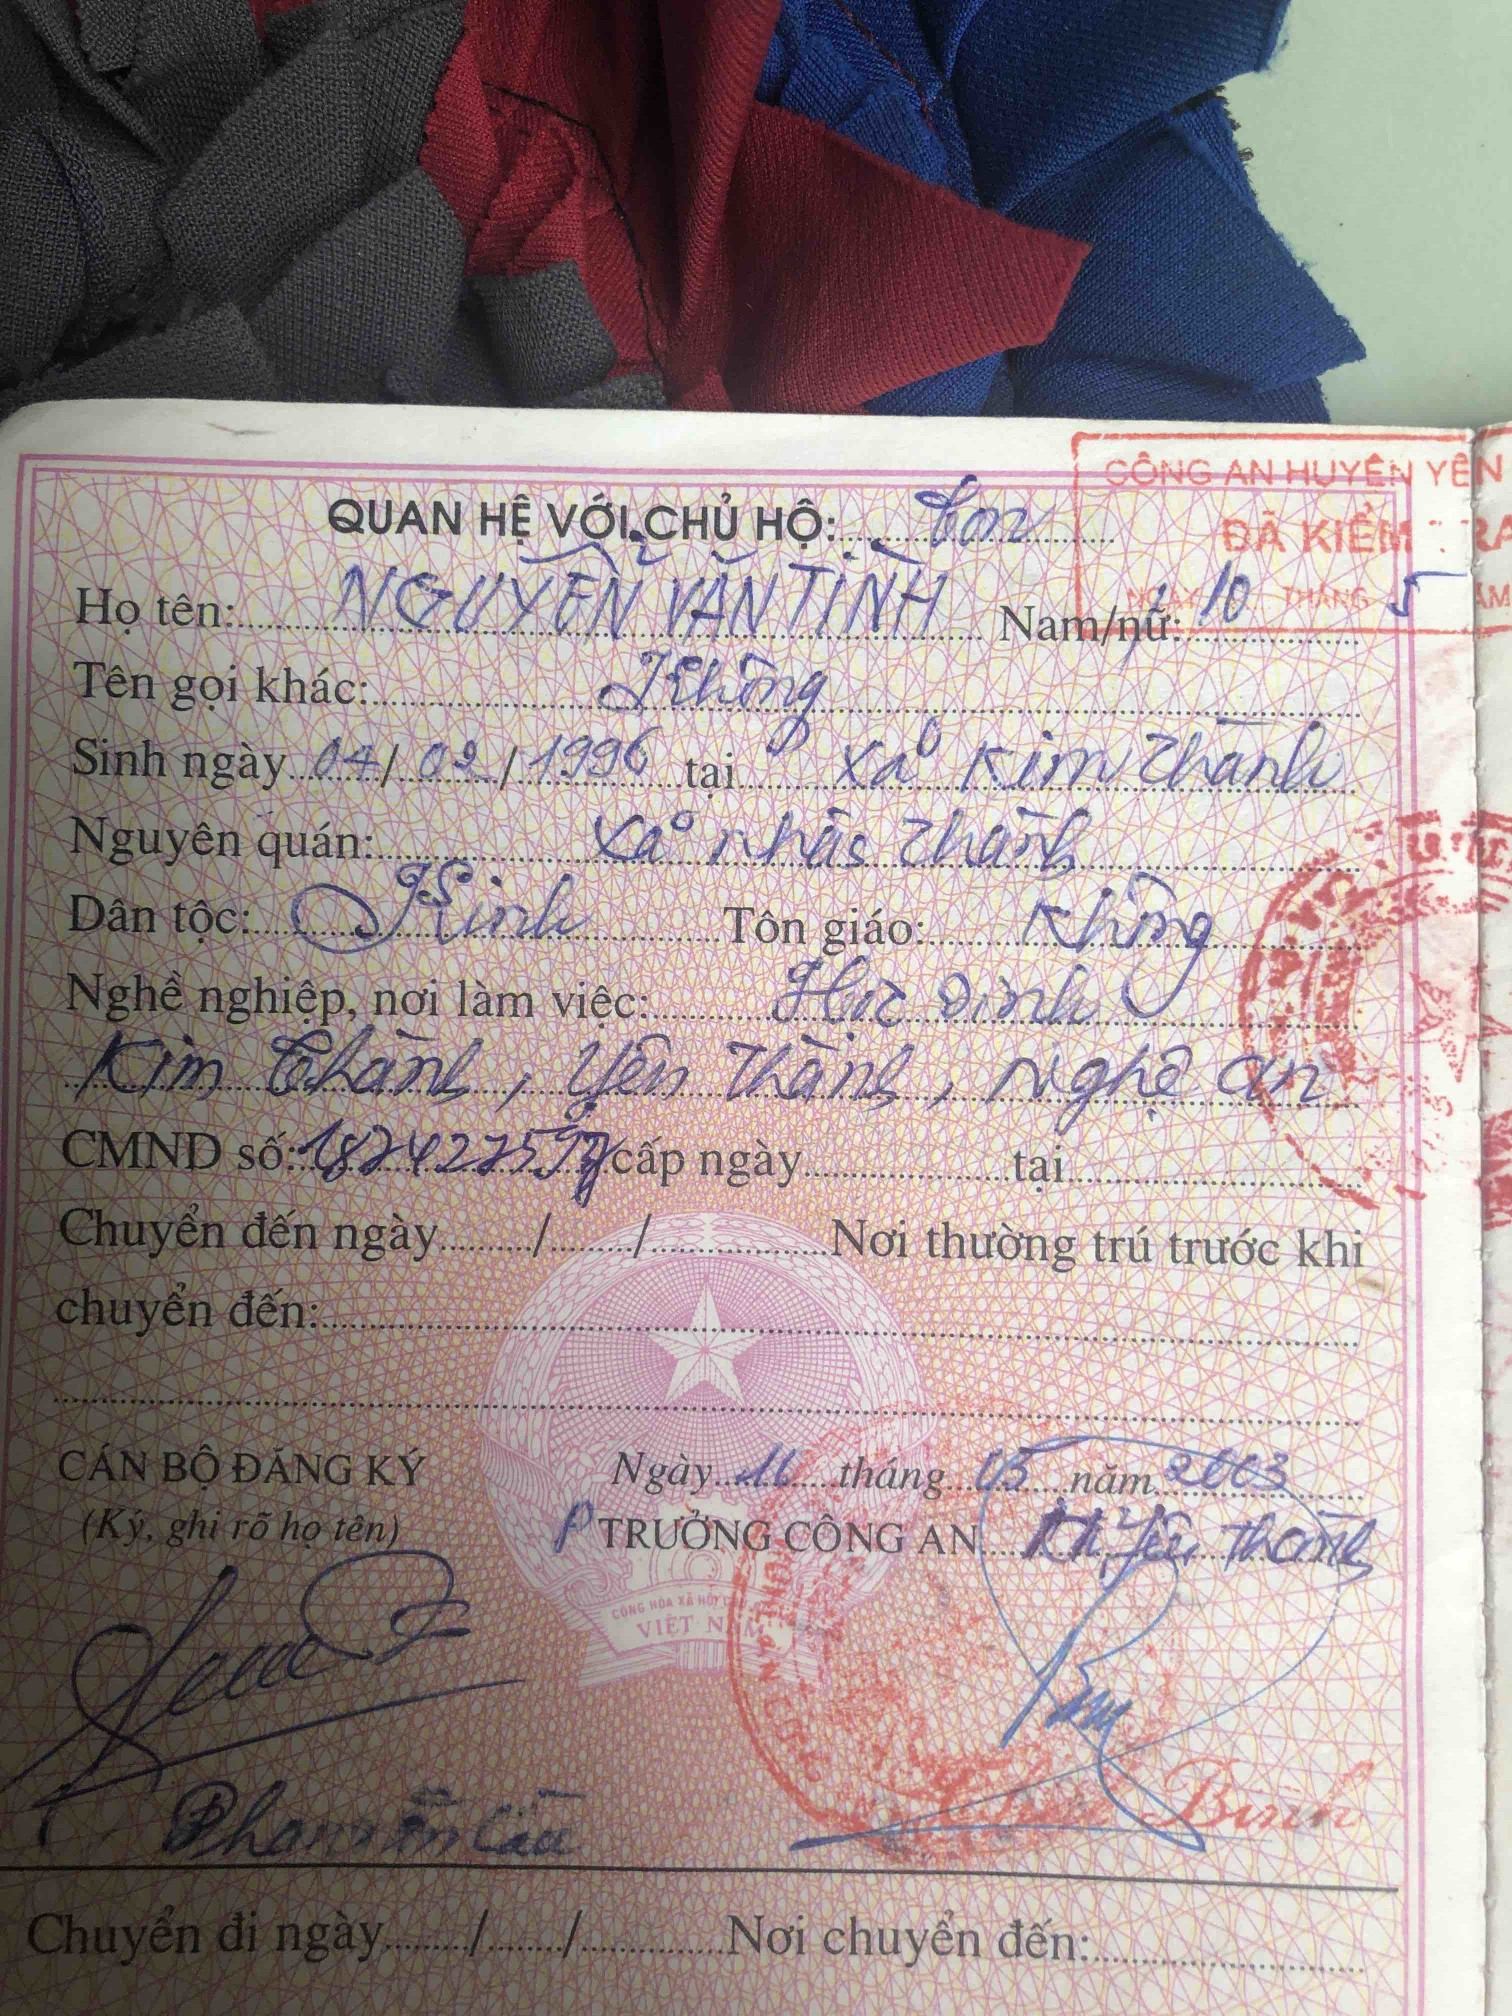 CÔNG AN HUYỆN YÊN
ĐÃ KIỂM TRA
NGÀY 10 THÁNG 5 NĂM
QUAN HỆ VỚI CHỦ HỘ: Con
Họ tên: NGUYỄN VĂN TỊNH Nam/nữ:
Tên gọi khác: Không
Sinh ngày 04/02/1996 tại Xã Kim Thành
Nguyên quán: Xã Nhân Thành
Dân tộc: Kinh Tôn giáo: Không
Nghề nghiệp, nơi làm việc: Học sinh
Kim Thành, Yên Thành, Nghệ an
CMND số: cấp ngày tại
Chuyển đến ngày / / Nơi thường trú trước khi
chuyển đến:
CÁN BỘ ĐĂNG KÝ
(Ký, ghi rõ họ tên)
Ngày 16 tháng 05 năm 2003
P TRƯỞNG CÔNG AN Yên Thành
CỘNG HÒA XÃ HỘI
VIỆT NAM
Bình
Chuyển đi ngày / / Nơi chuyển đến: